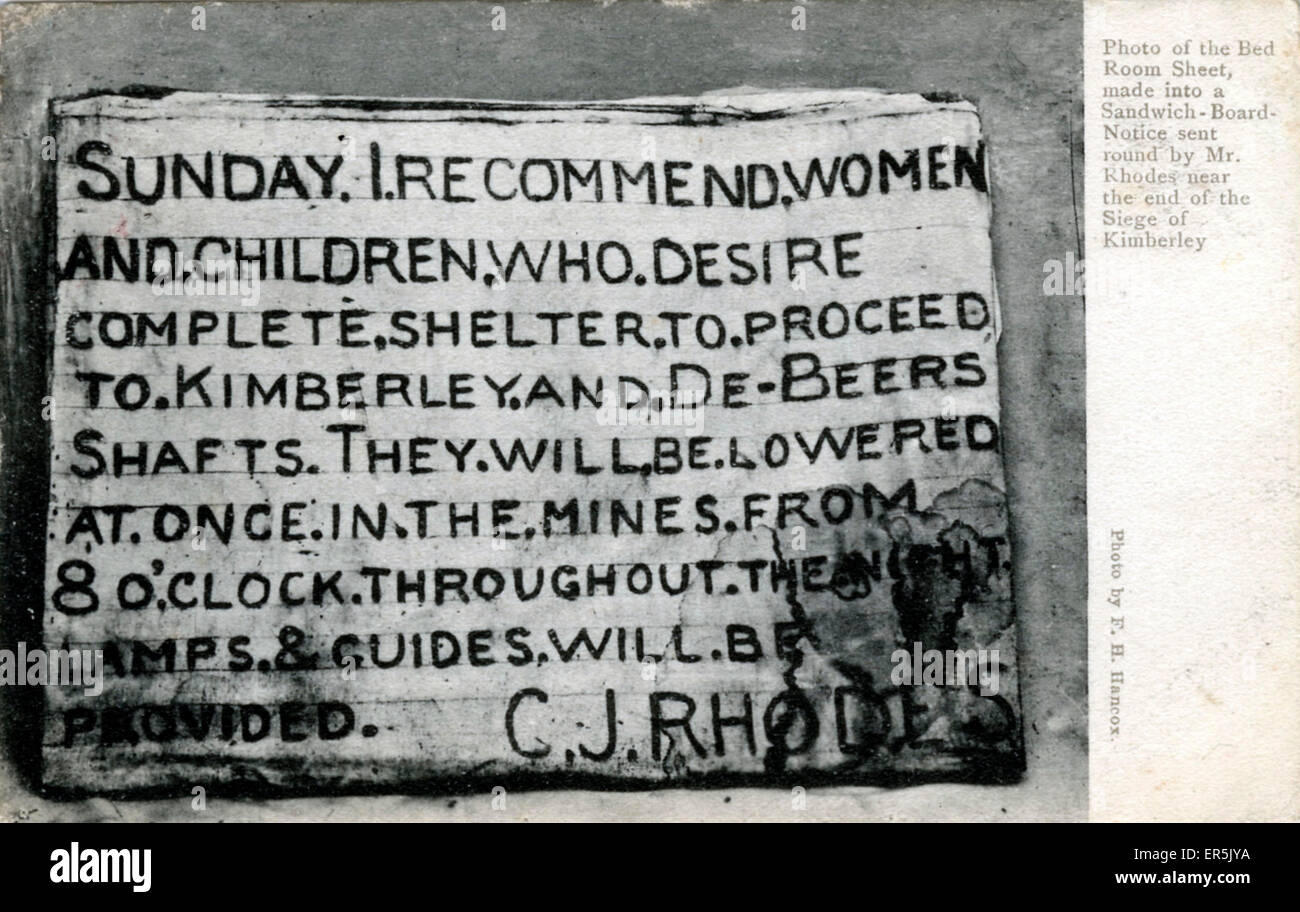 SUNDAY. I. RECOMMEND. WOMEN
AND. CHILDREN. WHO. DESIRE
COMPLETE. SHELTER. TO. PROCEED
TO. KIMBERLEY. AND. DE-BEERS
SHAFTS. THEY. WILL. BE. LOWERED
AT. ONCE. IN. THE. MINES. FROM
8 O'.CLOCK. THROUGHOUT. THE NIGHT.
LAMPS. & GUIDES. WILL. BE
PROVIDED. C.J. RHODES
Photo of the Bed
Room Sheet,
made into a
Sandwich-Board-
Notice sent
round by Mr.
Rhodes near
the end of the
Siege of
Kimberley
Photo by F. H. Hancox.
alamy
Image ID: ER5JYA
www.alamy.com